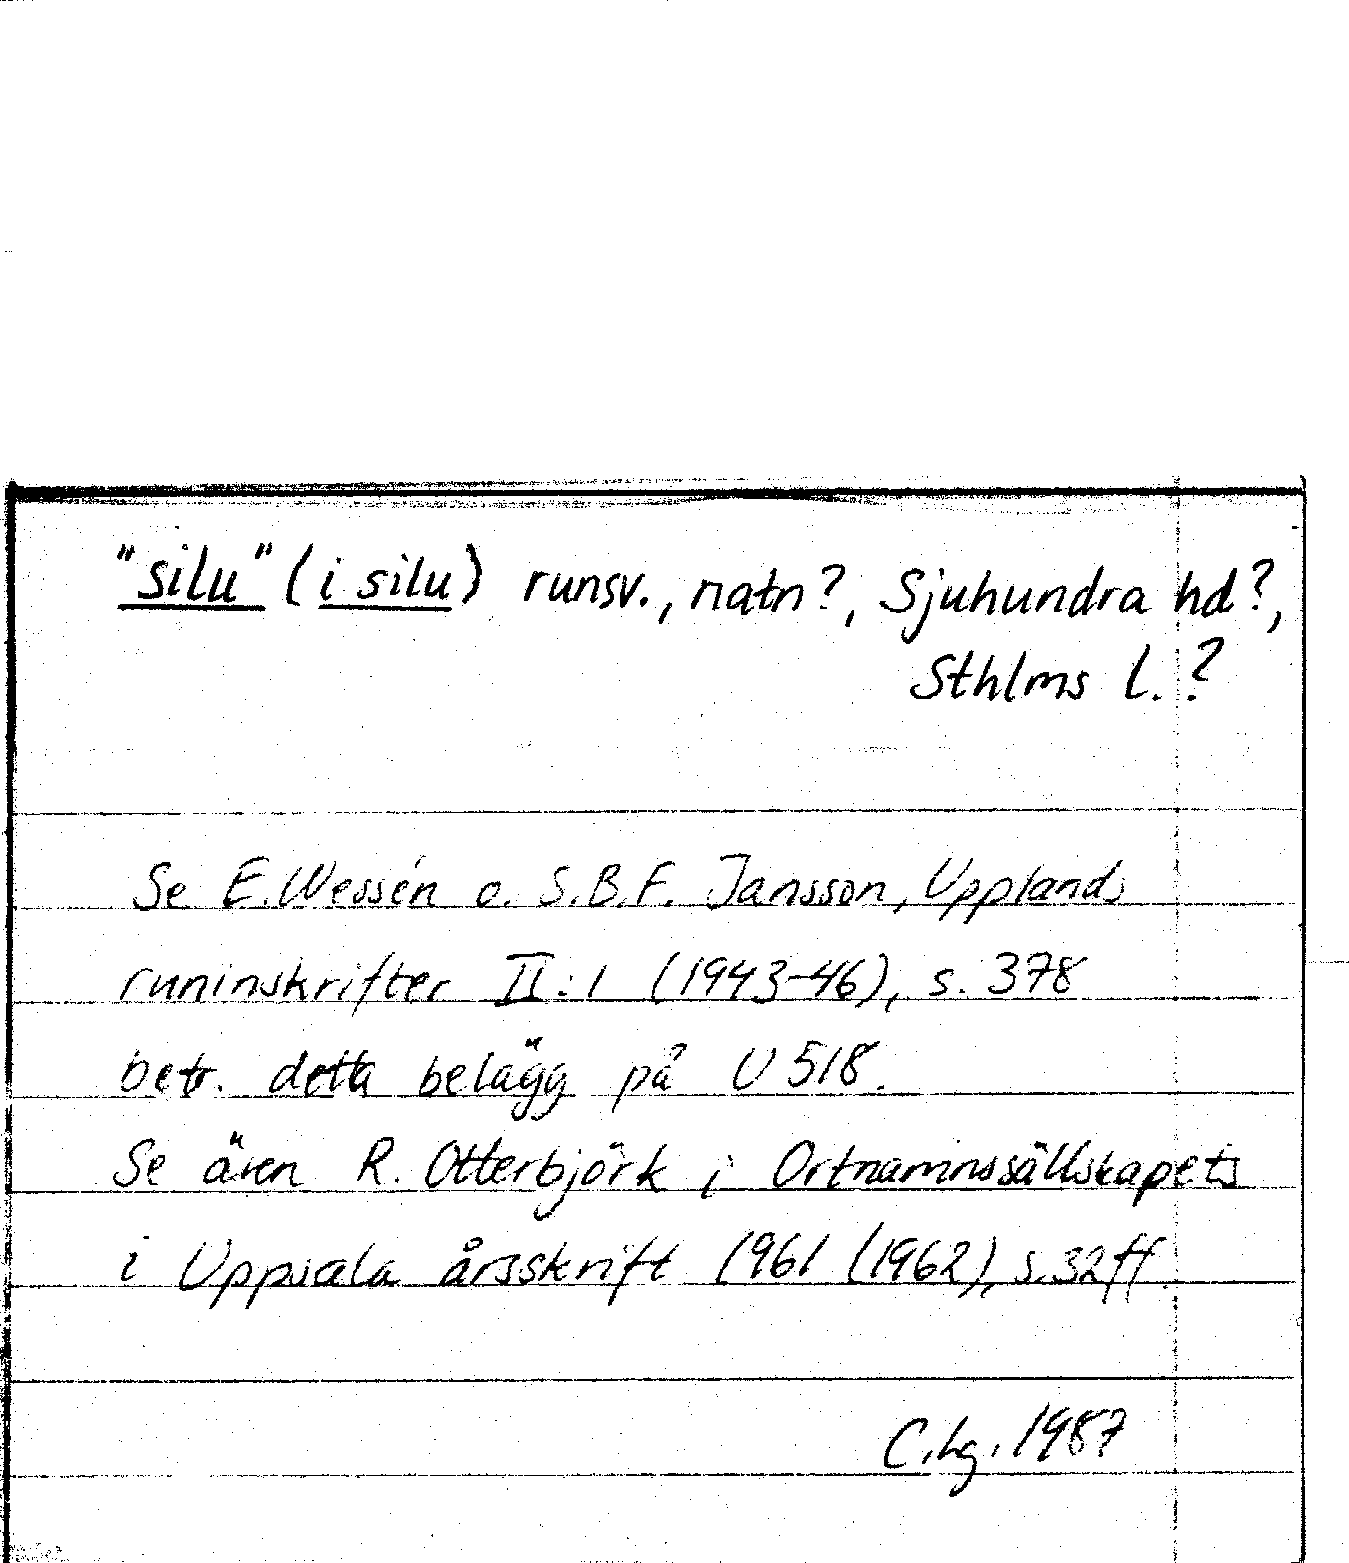 "silu" (i silu) runsv., natn?, Sjuhundra hd?,
Sthlms l.?
Se E. Wessén o. S.B.F. Jansson, Upplands
runinskrifter II:1 (1943-46), s. 378
betr. detta belägg på U 518.
Se även R. Otterbjörk i Ortnamnssällskapets
i Uppsala årsskrift 1961 (1962), s. 32 ff.
C.hg. 1987